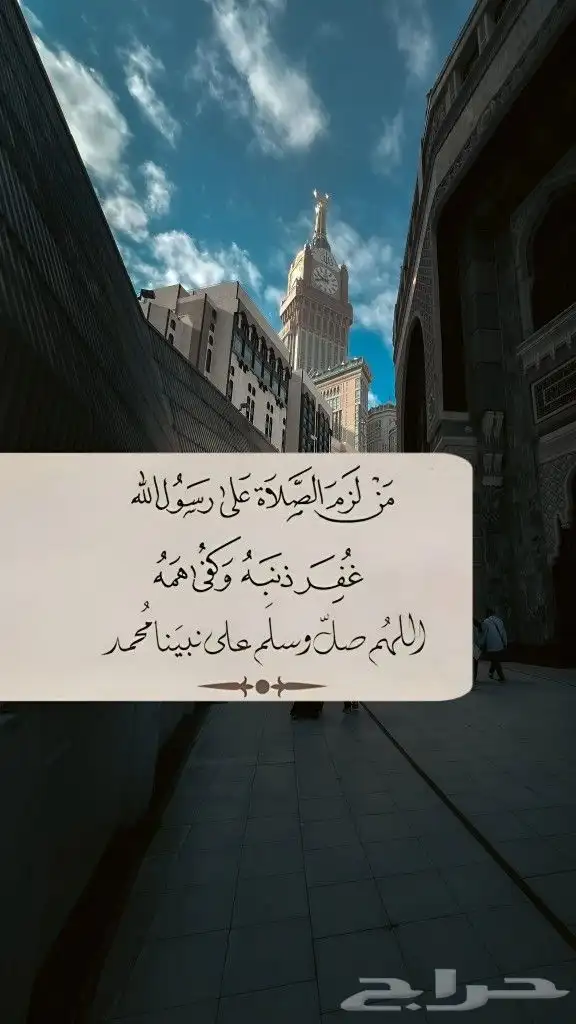 مَنْ لَزِمَ الصَّلَاةَ عَلَى رَسُولِ الله
غُفِرَ ذَنبَهُ وَكُفِيَ هَمَهُ
اللهُم صلّ وسلَم على نبيَنا مُحمد
حراج